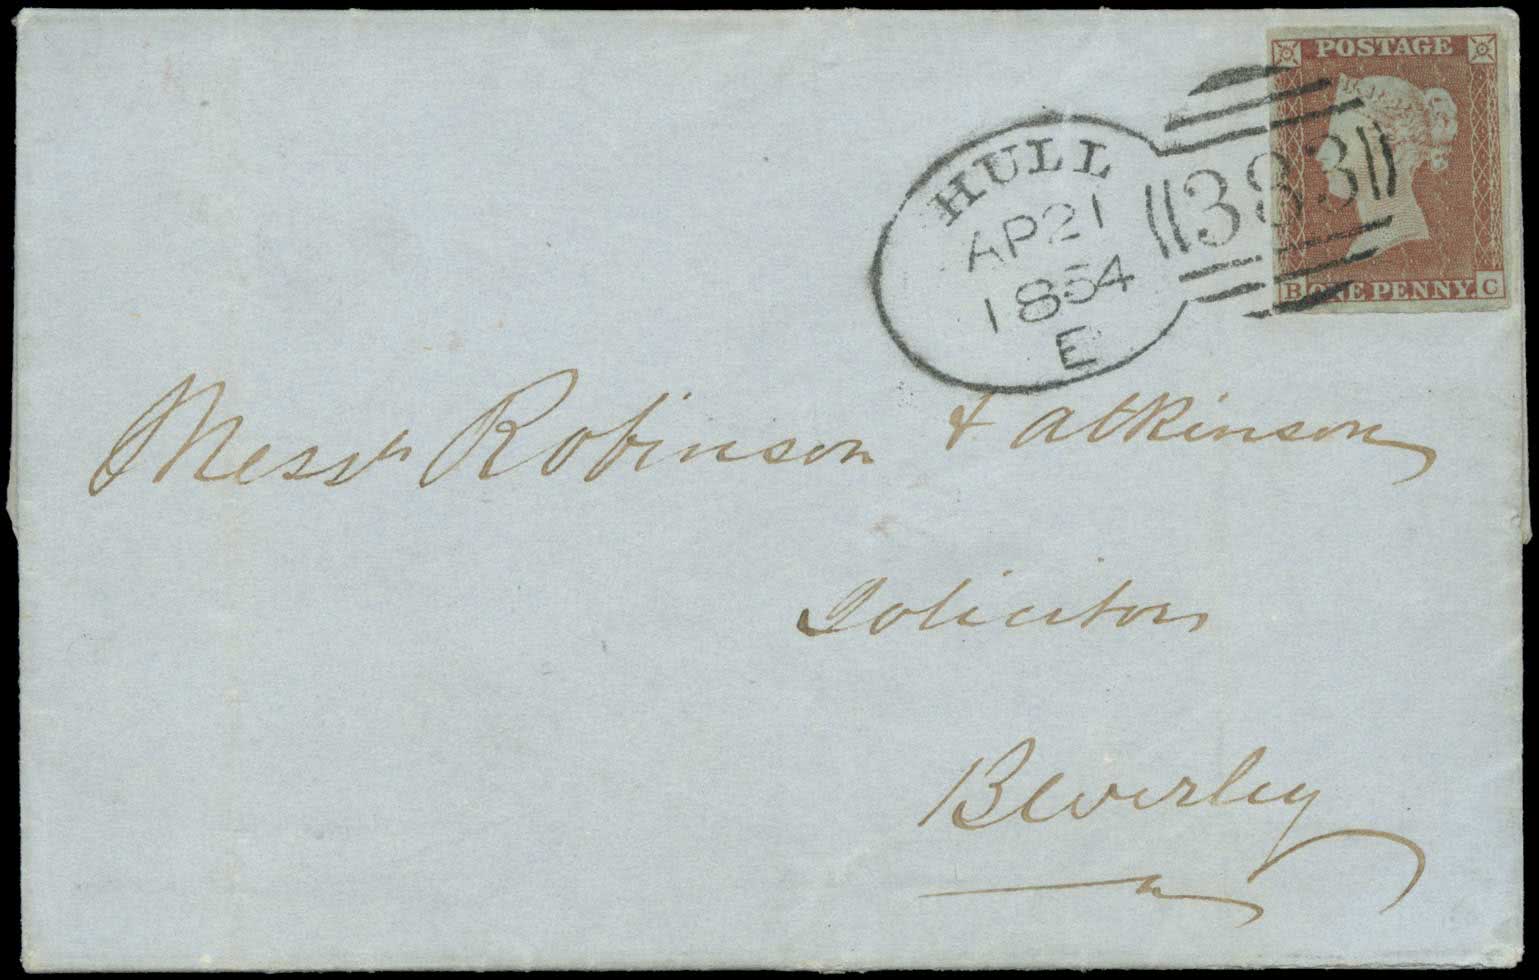 POSTAGE
HULL
AP 21
1854
E
383
B ONE PENNY. C
Messrs Robinson & Atkinson
Solicitors
Beverley